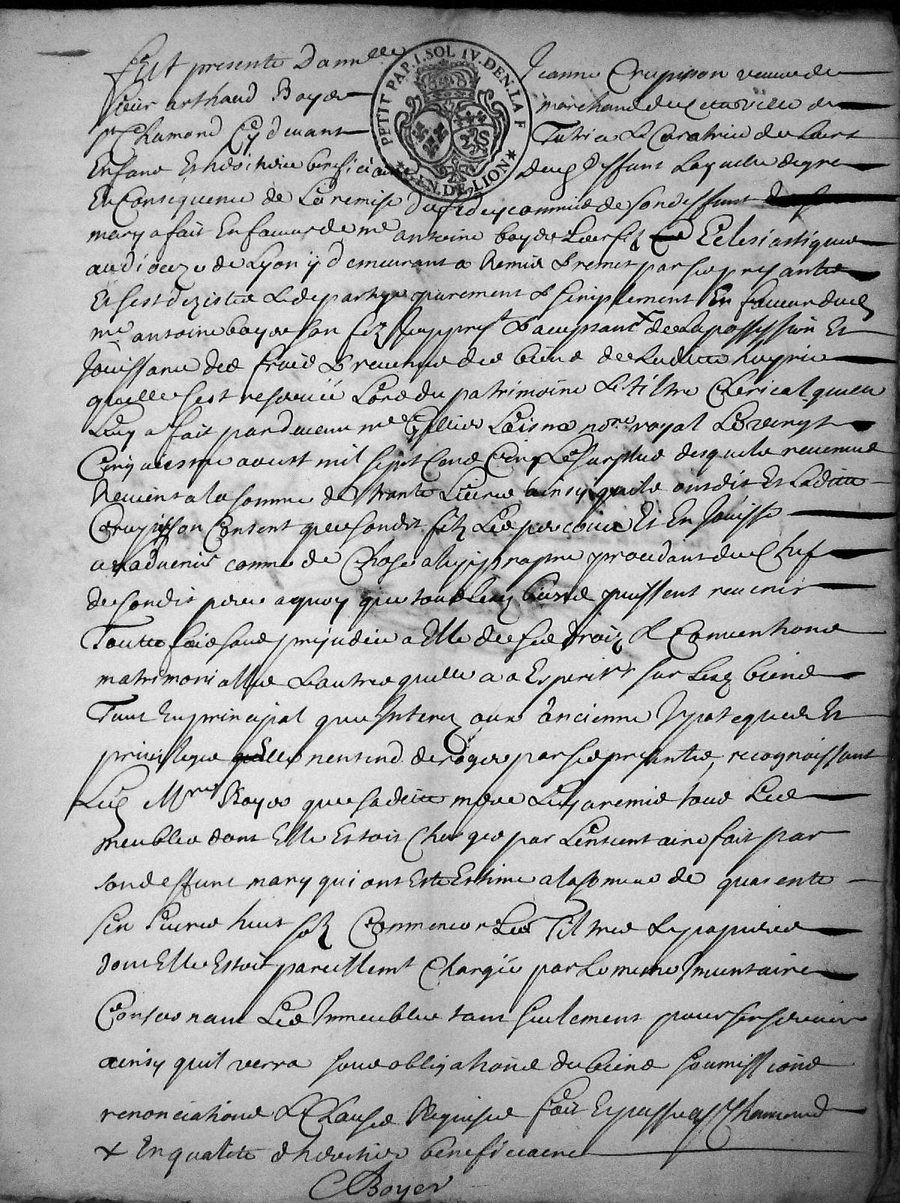 Fust presente Dam^lle Jeanne Crupisson veuve de
sieur arthaud Boyer marchand de cette ville de
st Chamond Cy devant Tutrice & Curatrice de Leurs
Enfans Et heritiere beneficiaire Dud deffunt Laquelle de gre
En Consequence de La remise du fideycommis de son deffunt
mary a fait En faveur de m^e antoine boyer Leur filz Eclesiastique
au dioceze de Lyon y demeurant a Remis & remet par ses presantes
Et sest dezistee & departye purement & simplement En faveur dud
m^e antoine boyer son filz present & acceptant de La possession Et
Jouissance des fruis & revenus des biens de Ladite hoyrie
quelle sest reservée Lors du patrimoine & tiltre Clerical quelle
Luy a fait pardevant m^e not^re royal Le vingt
Cinquiesme aoust mil sept Cens Cinq Le surplus desquels revenus
Revient a la somme de trante Livres ainsy quils ont dit Et Ladite
Crupisson Consent que sondit filz Les percoive Et En Jouisse
a Ladvenir comme de Chose a luy propre procedant du Chef
de sondit pere a quoy que tous Lesd biens puissent revenir
Toutte fois sans prejudice a Elle de ses droiz & Conventions
matrimonialles & autres quelle a a Esperer sur Lesd biens
Tant En principal que Interez aux anciennes Ypoteques Et
privilege quelle nentend deroger par ses presantes, recognoissant
Led M^re Boyer que sadite mere Luy a remis tous Les
meubles dont Elle Estoit Chargée par Linventaire fait par
son deffunt mary qui ont Este Estime a la somme de quarente
Six Livres huit solz Comme encor Les Tiltres & papiers
dont Elle Estoit pareillem^t Chargée par Le meme Inventaire
Concernans Les Immeubles tant seulement pour sen servir
ainsy quil verra sous obligations de biens soumissions
renonciations & Clauses Requises fait Et passe a st Chamond
+ En qualité dheritier beneficiaire
Boyer
PETIT PAP. I. SOL IV. DEN. LA F
GEN. DE LION